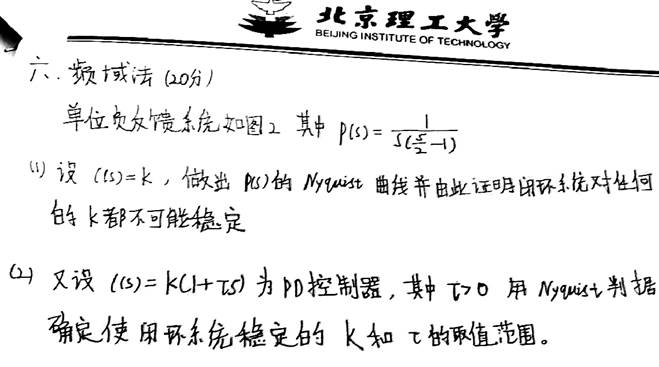 北京理工大学
BEIJING INSTITUTE OF TECHNOLOGY
六、频域法 (20分)
单位负反馈系统如图2 其中 P(s)=1/(s(s/2-1))
(1) 设 C(s)=k，做出 P(s)的 Nyquist 曲线并由此证明闭环系统对任何
的 k 都不可能稳定
(2) 又设 C(s)=k(1+τs) 为 PD 控制器，其中 τ>0 用 Nyquist 判据
确定使闭环系统稳定的 k 和 τ 的取值范围。